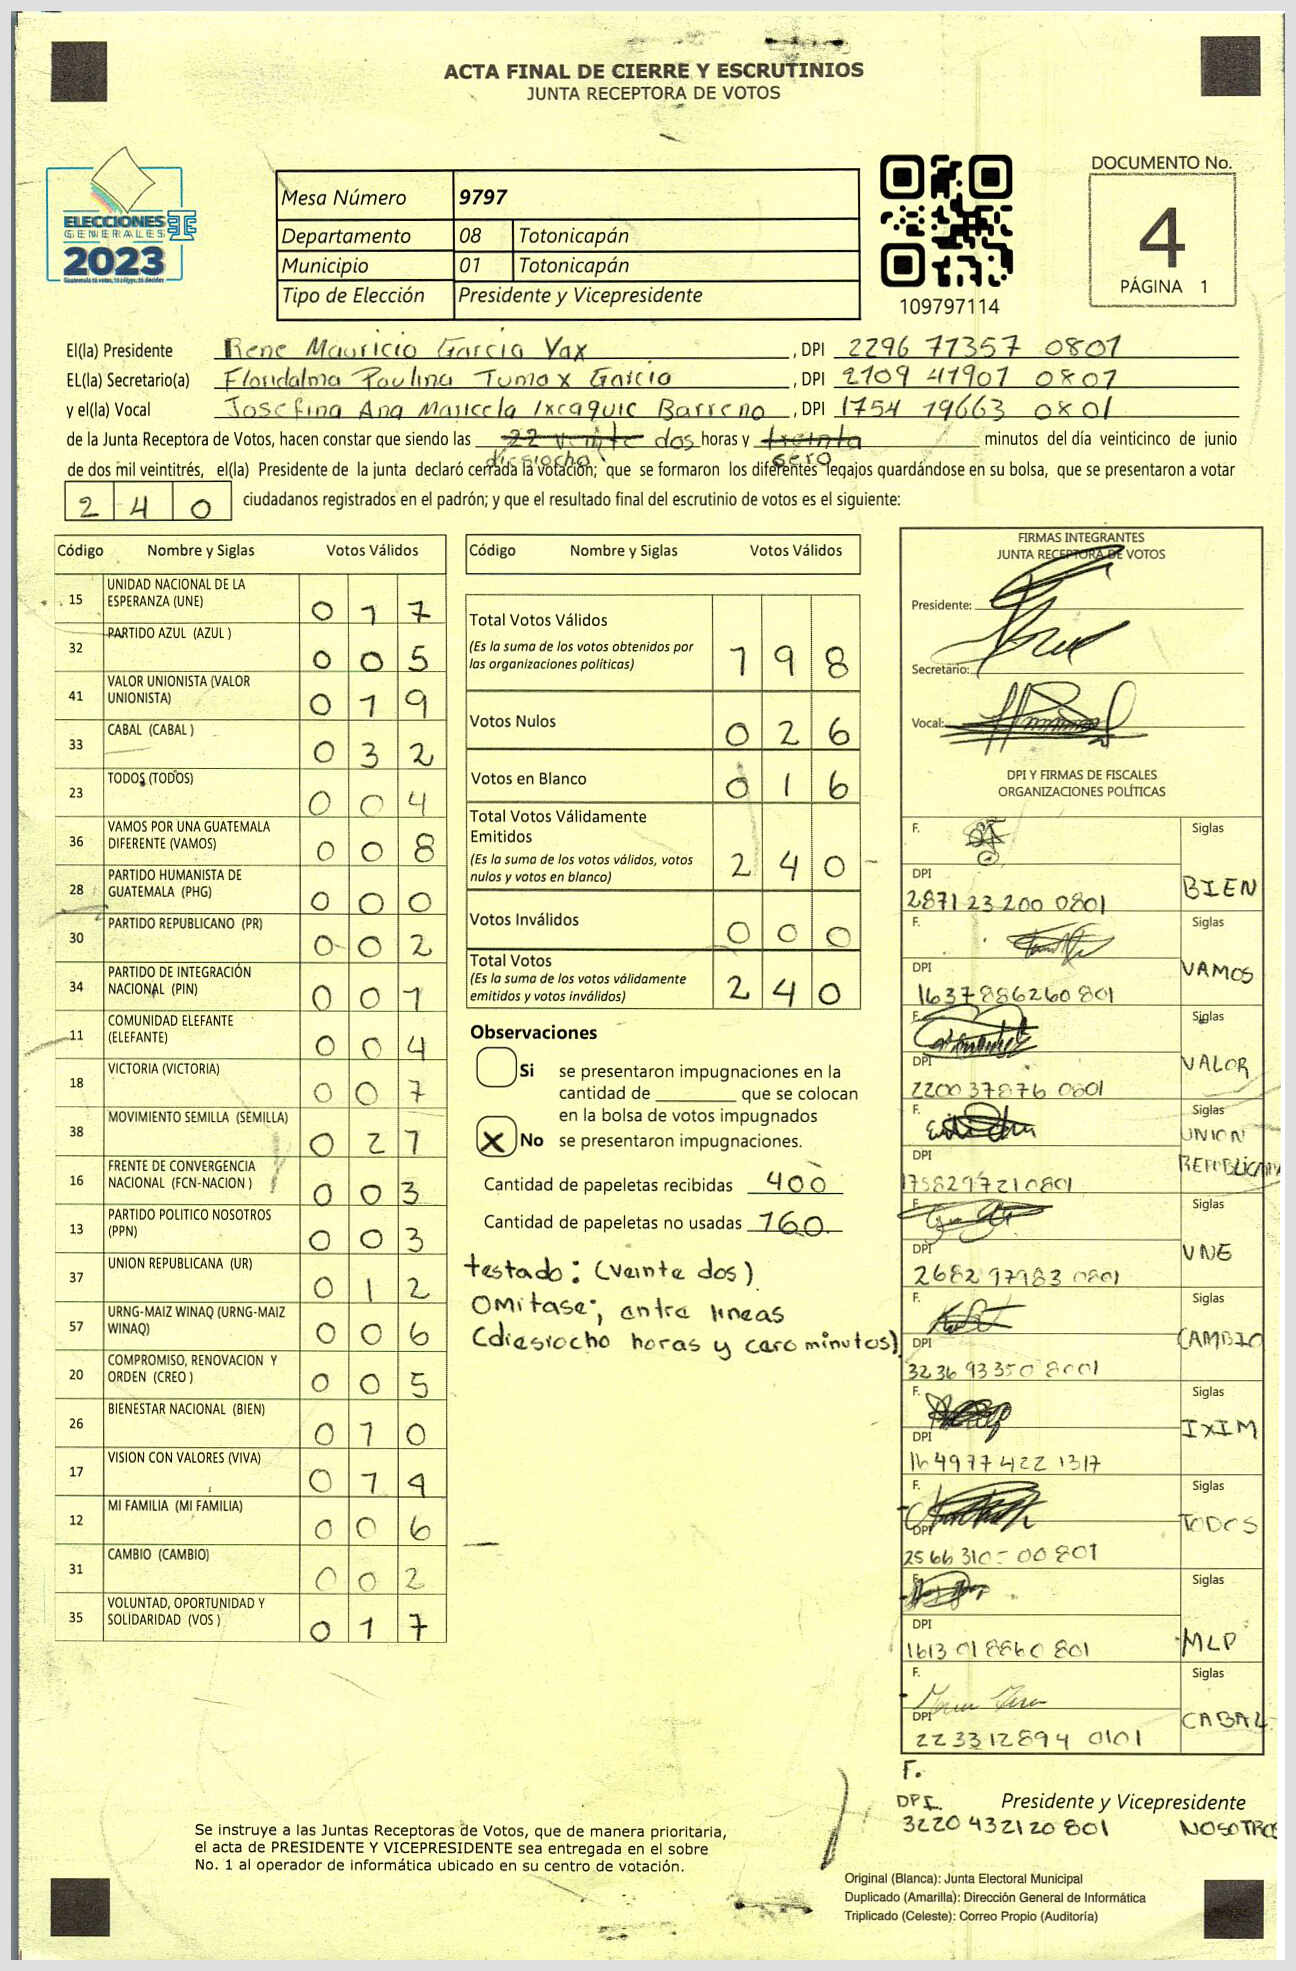 ACTA FINAL DE CIERRE Y ESCRUTINIOS
JUNTA RECEPTORA DE VOTOS
ELECCIONES
GENERALES
2023
Mesa Número 9797
Departamento 08 Totonicapán
Municipio 01 Totonicapán
Tipo de Elección Presidente y Vicepresidente
109797114
DOCUMENTO No.
4
PÁGINA 1
El(la) Presidente Rene Mauricio Garcia Vax, DPI 2296 71357 0801
EL(la) Secretario(a) Floridalma Paulina Tumax Garcia, DPI 2109 41901 0801
y el(la) Vocal Josefina Ana Maricela Ixcaquic Barreno, DPI 1754 19663 0801
de la Junta Receptora de Votos, hacen constar que siendo las 22 veinte dos horas y treinta minutos del día veinticinco de junio
diesiocho sero
de dos mil veintitrés, el(la) Presidente de la junta declaró cerrada la votación; que se formaron los diferentes legajos guardándose en su bolsa, que se presentaron a votar
2 4 0 ciudadanos registrados en el padrón; y que el resultado final del escrutinio de votos es el siguiente:
Código Nombre y Siglas Votos Válidos
15 UNIDAD NACIONAL DE LA ESPERANZA (UNE) 0 1 7
32 PARTIDO AZUL (AZUL ) 0 0 5
41 VALOR UNIONISTA (VALOR UNIONISTA) 0 1 9
33 CABAL (CABAL ) 0 3 2
23 TODOS (TODOS) 0 0 4
36 VAMOS POR UNA GUATEMALA DIFERENTE (VAMOS) 0 0 8
28 PARTIDO HUMANISTA DE GUATEMALA (PHG) 0 0 0
30 PARTIDO REPUBLICANO (PR) 0 0 2
34 PARTIDO DE INTEGRACIÓN NACIONAL (PIN) 0 0 1
11 COMUNIDAD ELEFANTE (ELEFANTE) 0 0 4
18 VICTORIA (VICTORIA) 0 0 7
38 MOVIMIENTO SEMILLA (SEMILLA) 0 2 7
16 FRENTE DE CONVERGENCIA NACIONAL (FCN-NACION ) 0 0 3
13 PARTIDO POLITICO NOSOTROS (PPN) 0 0 3
37 UNION REPUBLICANA (UR) 0 1 2
57 URNG-MAIZ WINAQ (URNG-MAIZ WINAQ) 0 0 6
20 COMPROMISO, RENOVACION Y ORDEN (CREO ) 0 0 5
26 BIENESTAR NACIONAL (BIEN) 0 1 0
17 VISION CON VALORES (VIVA) 0 1 4
12 MI FAMILIA (MI FAMILIA) 0 0 6
31 CAMBIO (CAMBIO) 0 0 2
35 VOLUNTAD, OPORTUNIDAD Y SOLIDARIDAD (VOS ) 0 1 7
Código Nombre y Siglas Votos Válidos
Total Votos Válidos 1 9 8
(Es la suma de los votos obtenidos por
las organizaciones políticas)
Votos Nulos 0 2 6
Votos en Blanco 0 1 6
Total Votos Válidamente
Emitidos 2 4 0
(Es la suma de los votos válidos, votos
nulos y votos en blanco)
Votos Inválidos 0 0 0
Total Votos 2 4 0
(Es la suma de los votos válidamente
emitidos y votos inválidos)
Observaciones
Si se presentaron impugnaciones en la
cantidad de ________ que se colocan
en la bolsa de votos impugnados
X No se presentaron impugnaciones.
Cantidad de papeletas recibidas 400
Cantidad de papeletas no usadas 160
testado: (veinte dos)
Omitase; entre lineas
(diesiocho horas y cero minutos)
FIRMAS INTEGRANTES
JUNTA RECEPTORA DE VOTOS
Presidente:
Secretario:
Vocal:
DPI Y FIRMAS DE FISCALES
ORGANIZACIONES POLÍTICAS
F. Siglas
DPI BIEN
2871 23 200 0801
F. Siglas
DPI VAMOS
1637886260801
F. Siglas
DPI VALOR
2200 37876 0801
F. Siglas
UNION
DPI REPUBLICANA
1758297210801
F. Siglas
DPI UNE
2682 97983 0801
F. Siglas
DPI CAMBIO
3236 93350 8001
F. Siglas
DPI IXIM
1649977422 1317
F. Siglas
DPI TODOS
F. Siglas
DPI MLP
1613 01 8860 801
F. Siglas
DPI CABAL
2233 12894 0101
F.
DPI
3220 43212 0801 NOSOTROS
Presidente y Vicepresidente
Se instruye a las Juntas Receptoras de Votos, que de manera prioritaria,
el acta de PRESIDENTE Y VICEPRESIDENTE sea entregada en el sobre
No. 1 al operador de informática ubicado en su centro de votación.
Original (Blanca): Junta Electoral Municipal
Duplicado (Amarilla): Dirección General de Informática
Triplicado (Celeste): Correo Propio (Auditoría)